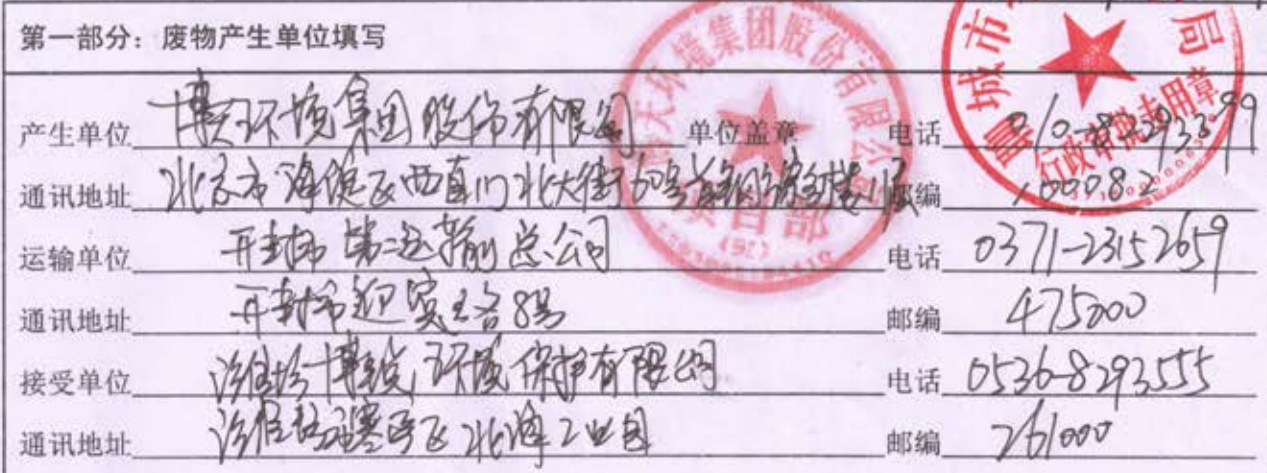 第一部分：废物产生单位填写
产生单位 博天环境集团股份有限公司 单位盖章 电话
通讯地址 北京市海淀区西直门北大街60号首钢综合楼 邮编 100082
运输单位 开封市第二运输总公司 电话 0371-23152659
通讯地址 开封市迎宾路8号 邮编 475000
接受单位 潍坊博锐环境保护有限公司 电话 0536-8293555
通讯地址 潍坊市寒亭区北海工业园 邮编 261000
博天环境集团股份有限公司
项目部
城市 局
行政审批专用章